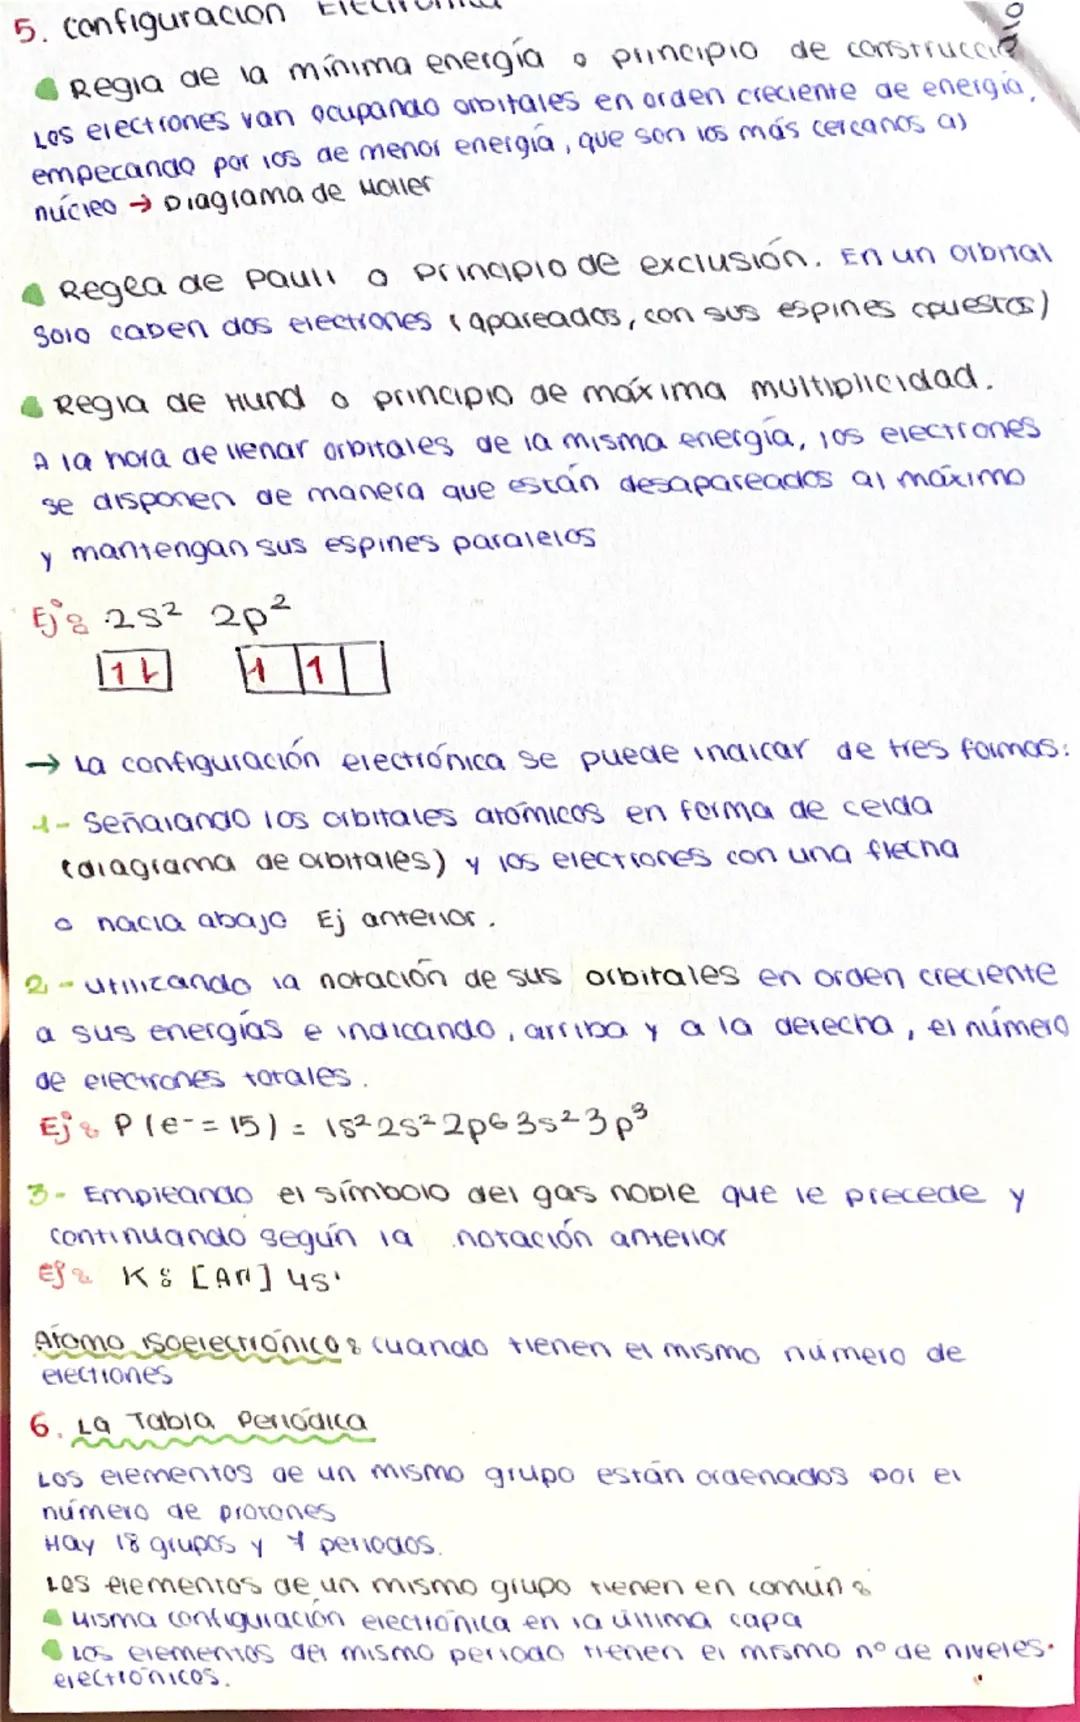 5. Configuración Electrónica
Regla de la mínima energía o principio de construcción
Los electrones van ocupando orbitales en orden creciente de energía,
empecando por los de menor energía, que son los más cercanos al
núcleo → Diagrama de Moller
Regla de Pauli o principio de exclusión. En un orbital
solo caben dos electrones (apareados, con sus espines opuestos)
Regla de Hund o principio de máxima multiplicidad.
A la hora de llenar orbitales de la misma energía, los electrones
se disponen de manera que están desapareados al máximo
y mantengan sus espines paralelos
Ej: 2s² 2p²
→ La configuración electrónica se puede indicar de tres formas:
1- Señalando los orbitales atómicos en forma de celda
(diagrama de orbitales) y los electrones con una flecha
o hacia abajo Ej anterior.
2- Utilizando la notación de sus orbitales en orden creciente
a sus energías e indicando, arriba y a la derecha, el número
de electrones totales.
Ej: P (e⁻ = 15) = 1s² 2s² 2p6 3s² 3p³
3- Empleando el símbolo del gas noble que le precede y
continuando según la notación anterior
Ej: K: [Ar] 4s¹
Átomo isoelectrónico: cuando tienen el mismo número de
electrones
6. La Tabla Periódica
Los elementos de un mismo grupo están ordenados por el
número de protones
Hay 18 grupos y 7 periodos.
Los elementos de un mismo grupo tienen en común:
Misma configuración electrónica en la última capa
Los elementos del mismo periodo tienen el mismo nº de niveles
electrónicos.